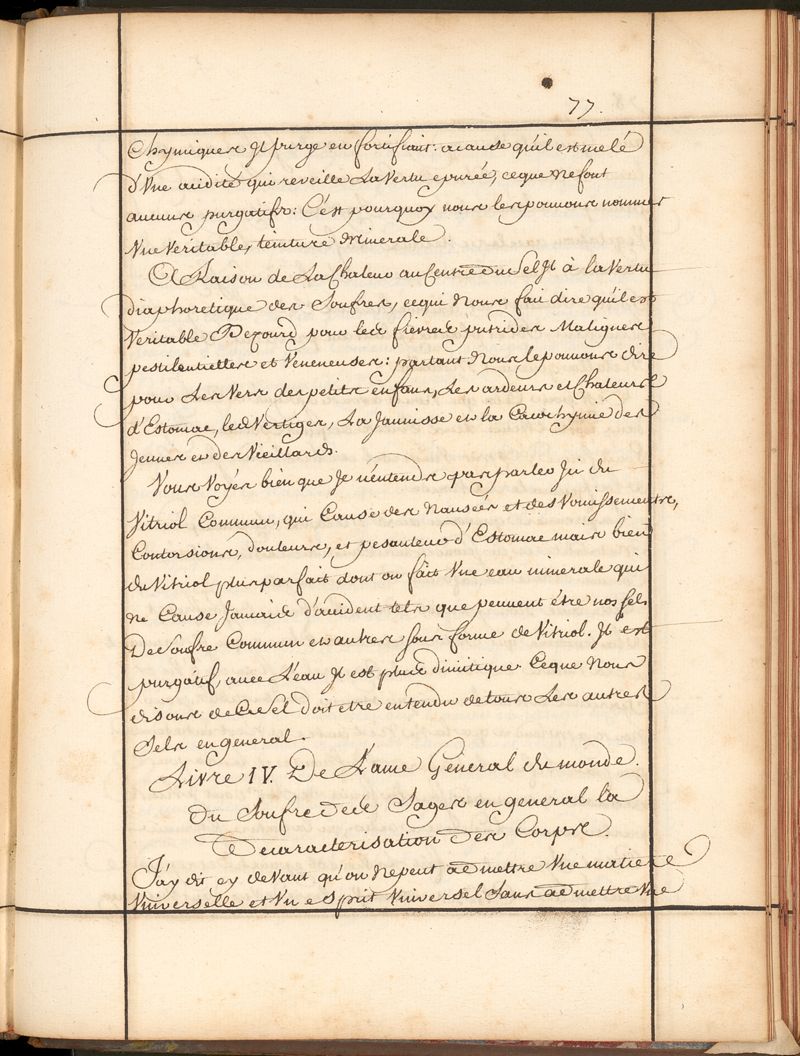 77.
Chymiques Il purge en fortifiant. a cause qu'il est melé
d'Vne acidité qui reveille La Vertu epurée, ce que ne font
aucuns purgatifs: C'est pourquoy nous les pouuons nommer
Vne Veritable, teinture Minerale.
A Raison de La Chaleur au Centre du Sel Il à la Vertu
diaphoretique des Soufres, ce qui Nous fait dire qu'il est
Veritable Bezourd pour les fievres putrides Malignes
pestilentielles et Veneneuses: partant Nous le pouuons dire
pour Les Vers des petits enfans, Les ardeurs et Chaleurs
d'Estomac, les Vertiges, La Jaunisse et la Cacochymie des
Jeunes et des Vieillards.
Vous Voyés bien que Je n'entends pas parler Jci du
Vitriol Commun, qui Cause des Nausées et des Vomissements,
Contorsions, douleurs, et pesanteur d'Estomac mais bien
du Vitriol plus parfait dont on fait Vne eau minerale qui
ne Cause Jamais d'accident tels que peuuent étre nos sels
De Soufre Commun et autres sous forme de Vitriol. Il est
purgatif, auec L'eau Il est plus diuitique. Ce que Nous
disons de Ce Sel doit etre entendu de tous Les autres
Sels en general.
Livre IV. De L'ame General du monde.
du Soufre des Sages en general la
Decaracterisation des Corps.
J'ay dit cy devant qu'on Ne peut admettre Vne matiere
Vniverselle et Vn esprit Vniversel Sans admettre Vne